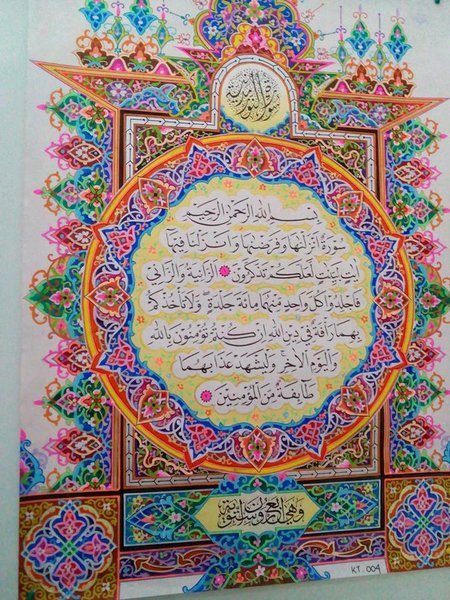 سورة النور مدنية
بسم الله الرحمن الرحيم
سورة انزلنها وفرضنها وانزلنا فيها
ايت بينت لعلكم تذكرون الزانية والزاني
فاجلدوا كل واحد منهما مائة جلدة ولا تأخذكم
بهما رأفة في دين الله ان كنتم تؤمنون بالله
واليوم الاخر وليشهد عذابهما
طائفة من المؤمنين
وهي اربع وستون اية
K.T. 004